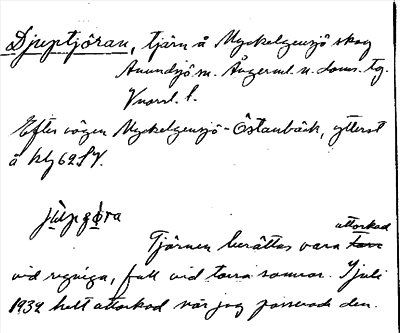 Djuptjöran, tjärn å Myckelgensjö skog
Anundsjö sn. Ångerml. n. doms. tg.
Vnorrl. l.
Efter vägen Myckelgensjö - Östanbäck, ytterst
å kbl 62 SV.
attorkad
Tjärnen berättas vara
vid regniga, full vid torra somrar. I juli
1932 helt attorkad när jag passerade den.